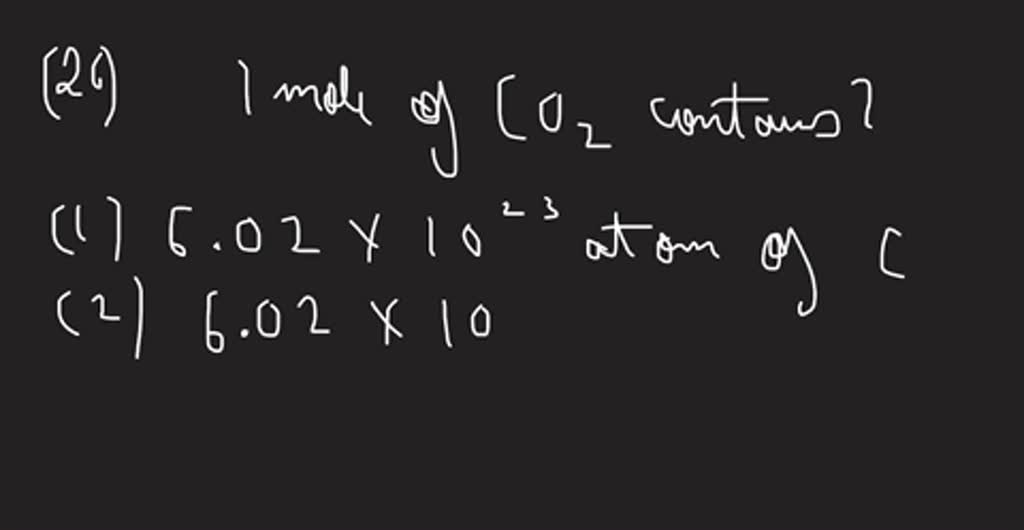 (20) 1 mole of CO₂ contains?
(1) 6.02 × 10²³ atom of C
(2) 6.02 × 10